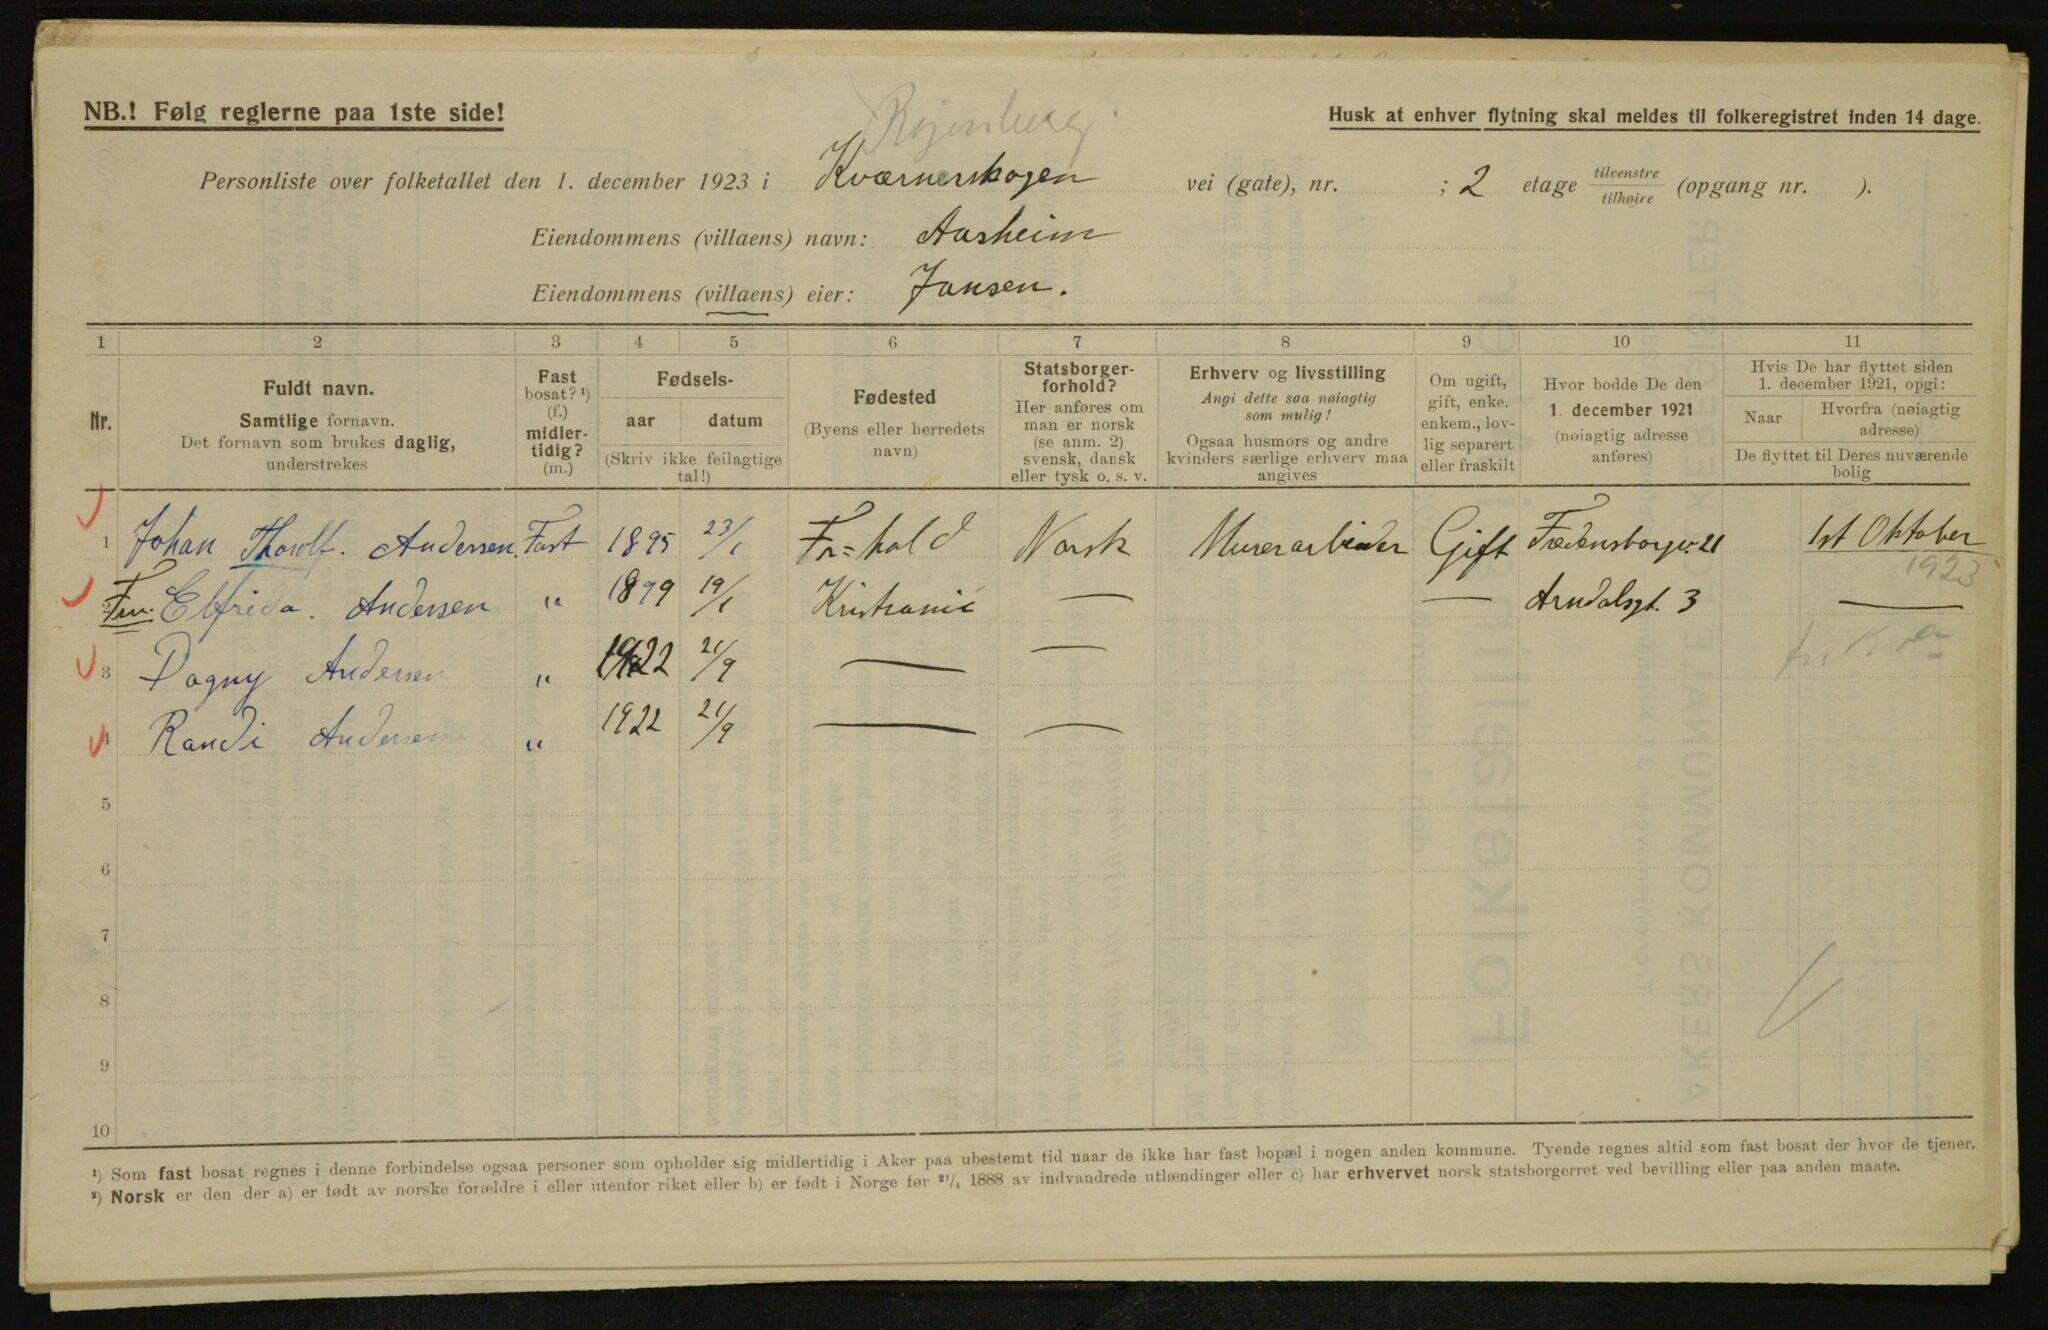 Rejenberg.
NB.! Følg reglerne paa 1ste side!
Husk at enhver flytning skal meldes til folkeregistret inden 14 dage.
Personliste over folketallet den 1. december 1923 i Kværnerskogen vei (gate), nr. ; 2 etage tilvenstre/tilhøire (opgang nr. ).
Eiendommens (villaens) navn: Aasheim
Eiendommens (villaens) eier: Jansen.
1 2 3 4 5 6 7 8 9 10 11
Nr.
Fuldt navn.
Samtlige fornavn.
Det fornavn som brukes daglig,
understrekes
Fast
bosat? ¹)
(f.)
midler-
tidig?
(m.)
Fødsels-
aar datum
(Skriv ikke feilagtige
tal!)
Fødested
(Byens eller herredets
navn)
Statsborger-
forhold?
Her anføres om
man er norsk
(se anm. 2)
svensk, dansk
eller tysk o. s. v.
Erhverv og livsstilling
Angi dette saa nøiagtig
som mulig!
Ogsaa husmors og andre
kvinders særlige erhverv maa
angives
Om ugift,
gift, enke.
enkem., lov-
lig separert
eller fraskilt
Hvor bodde De den
1. december 1921
(nøiagtig adresse
anføres)
Hvis De har flyttet siden
1. december 1921, opgi:
Naar
Hvorfra (nøiagtig
adresse)
De flyttet til Deres nuværende
bolig
1 Johan Thorolf. Andersen. Fast 1895 23/1 Fr=hald Norsk Murerarbeider Gift Fredensborgv. 21 1st Oktober
1923
Fru. Elfrida. Andersen " 1899 19/1 Kristiania — — Arndalsgt. 3 —
3 Dagny Andersen " 1922 21/9 — —
4 Randi Andersen " 1922 21/9 — —
5
6
7
8
9
10
¹) Som fast bosat regnes i denne forbindelse ogsaa personer som opholder sig midlertidig i Aker paa ubestemt tid naar de ikke har fast bopæl i nogen anden kommune. Tyende regnes altid som fast bosat der hvor de tjener.
²) Norsk er den der a) er født av norske forældre i eller utenfor riket eller b) er født i Norge før ²¹/₄ 1888 av indvandrede utlændinger eller c) har erhvervet norsk statsborgerret ved bevilling eller paa anden maate.